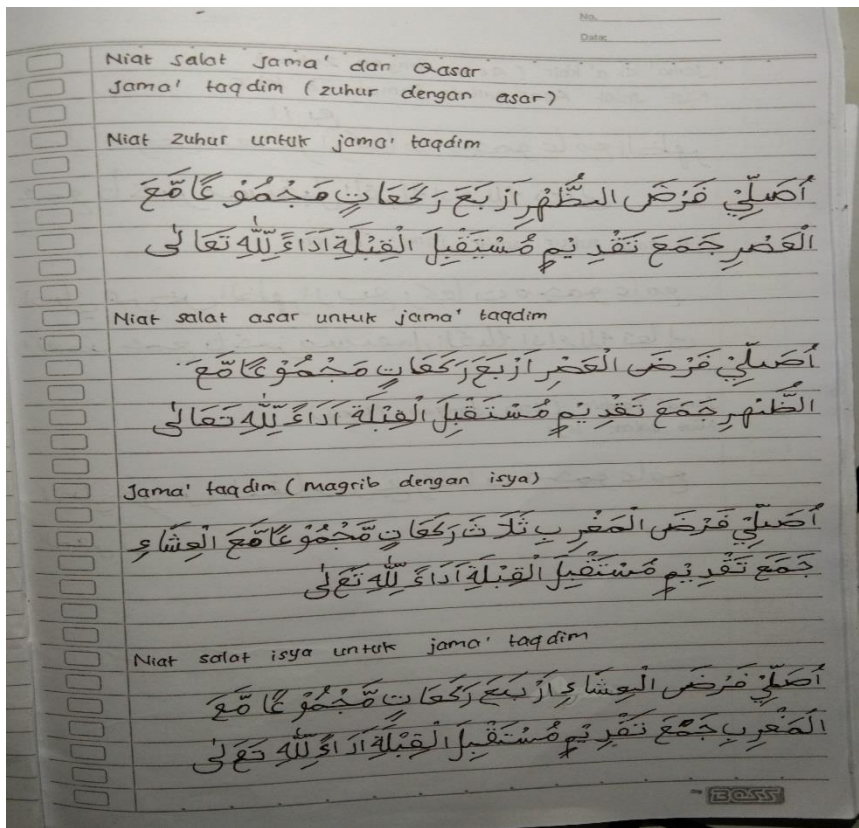 No.
Date:
Niat salat jama' dan Qasar
Jama' taqdim (zuhur dengan asar)
Niat zuhur untuk jama' taqdim
أُصَلِّيْ فَرْضَ الظُّهْرِ اَرْبَعَ رَكَعَاتٍ مَجْمُوْعًا مَّعَ
الْعَصْرِ جَمَعَ تَقْدِ يْمٍ مُسْتَقْبِلَ الْقِبْلَةِ اَدَاءً لِلّٰهِ تَعَالٰى
Niat salat asar untuk jama' taqdim
أُصَلِّيْ فَرْضَ الْعَصْرِ اَرْبَعَ رَكَعَاتٍ مَجْمُوْعًا مَّعَ
الظُّهْرِ جَمَعَ تَقْدِ يْمٍ مُسْتَقْبِلَ الْقِبْلَةِ اَدَاءً لِلّٰهِ تَعَالٰى
Jama' taqdim (magrib dengan isya)
أُصَلِّيْ فَرْضَ الْمَغْرِبِ ثَلَاثَ رَكَعَاتٍ مَّجْمُوْعًا مَّعَ الْعِشَاءِ
جَمَعَ تَقْدِ يْمٍ مُسْتَقْبِلَ الْقِبْلَةِ اَدَاءً لِلّٰهِ تَعَلٰى
Niat salat isya untuk jama' taqdim
أُصَلِّيْ فَرْضَ الْعِشَاءِ اَرْبَعَ رَكَعَاتٍ مَّجْمُوْعًا مَّعَ
الْمَغْرِبِ جَمْعَ تَقْدِ يْمٍ مُسْتَقْبِلَ الْقِبْلَةِ اَدَاءً لِلّٰهِ تَعَلٰى
BOSS